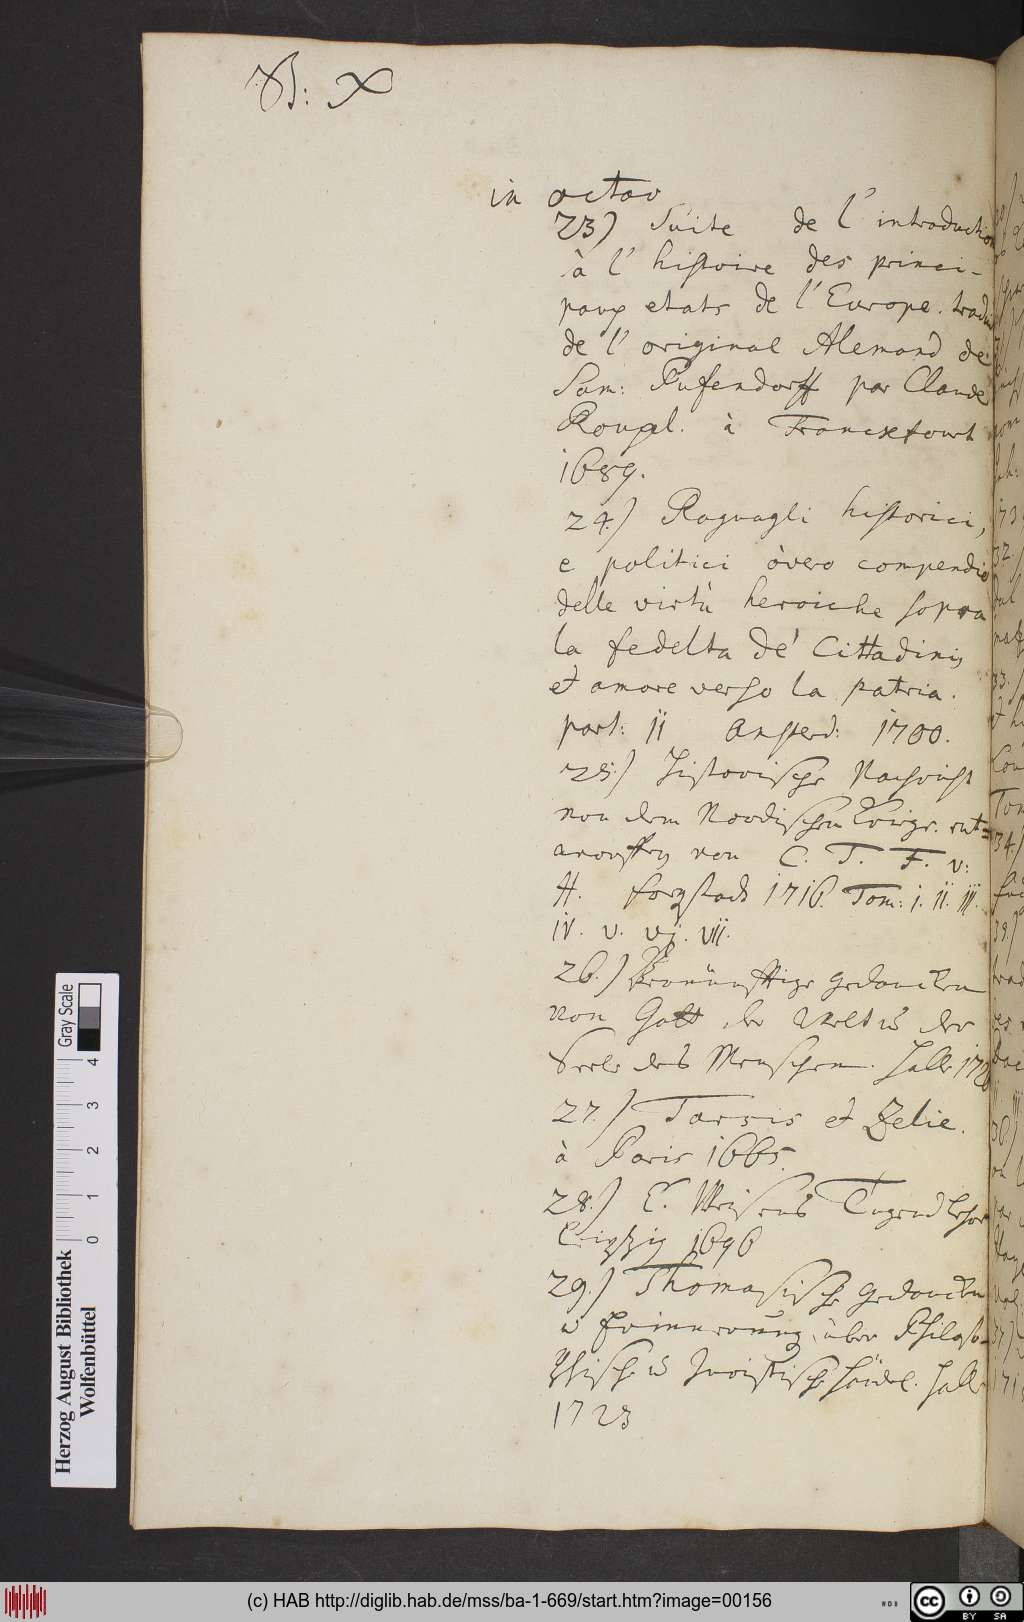 B: X
in octav
23) Suite de l' introduction
à l' histoire des princi-
paux etats de l' Europe. traduit
de l' original Alemand de
Sam: Pufendorff par Claude
Rouxel. à Franckfourt
1689.
24.) Raguagli historici,
e politici òvero compendio
delle virtù heroiche sopra
la fedelta de' Cittadini,
et amore verso la patria.
part: II Amsterd: 1700.
25.) Historische Nachricht
von dem Nordischen Kriege. ent=
worffen von C. T. F. v:
H. freystadt 1716. Tom: i. ii. iii.
iv. v. vj. vii.
26.) Vernünfftige gedancken
von Gott der Welt u der
Seele des Menschen. Halle 172
27.) Tarsis et Zelie.
à Paris 1665.
28.) C. Weisens Tugend Lehre
Leipzig 1696
29.) Thomasische gedancken
u Erinnerung über Philoso=
phische u Juristische händel. Halle
1723
Herzog August Bibliothek
Wolfenbüttel
Gray Scale
0 1 2 3 4
(c) HAB http://diglib.hab.de/mss/ba-1-669/start.htm?image=00156
cc BY SA